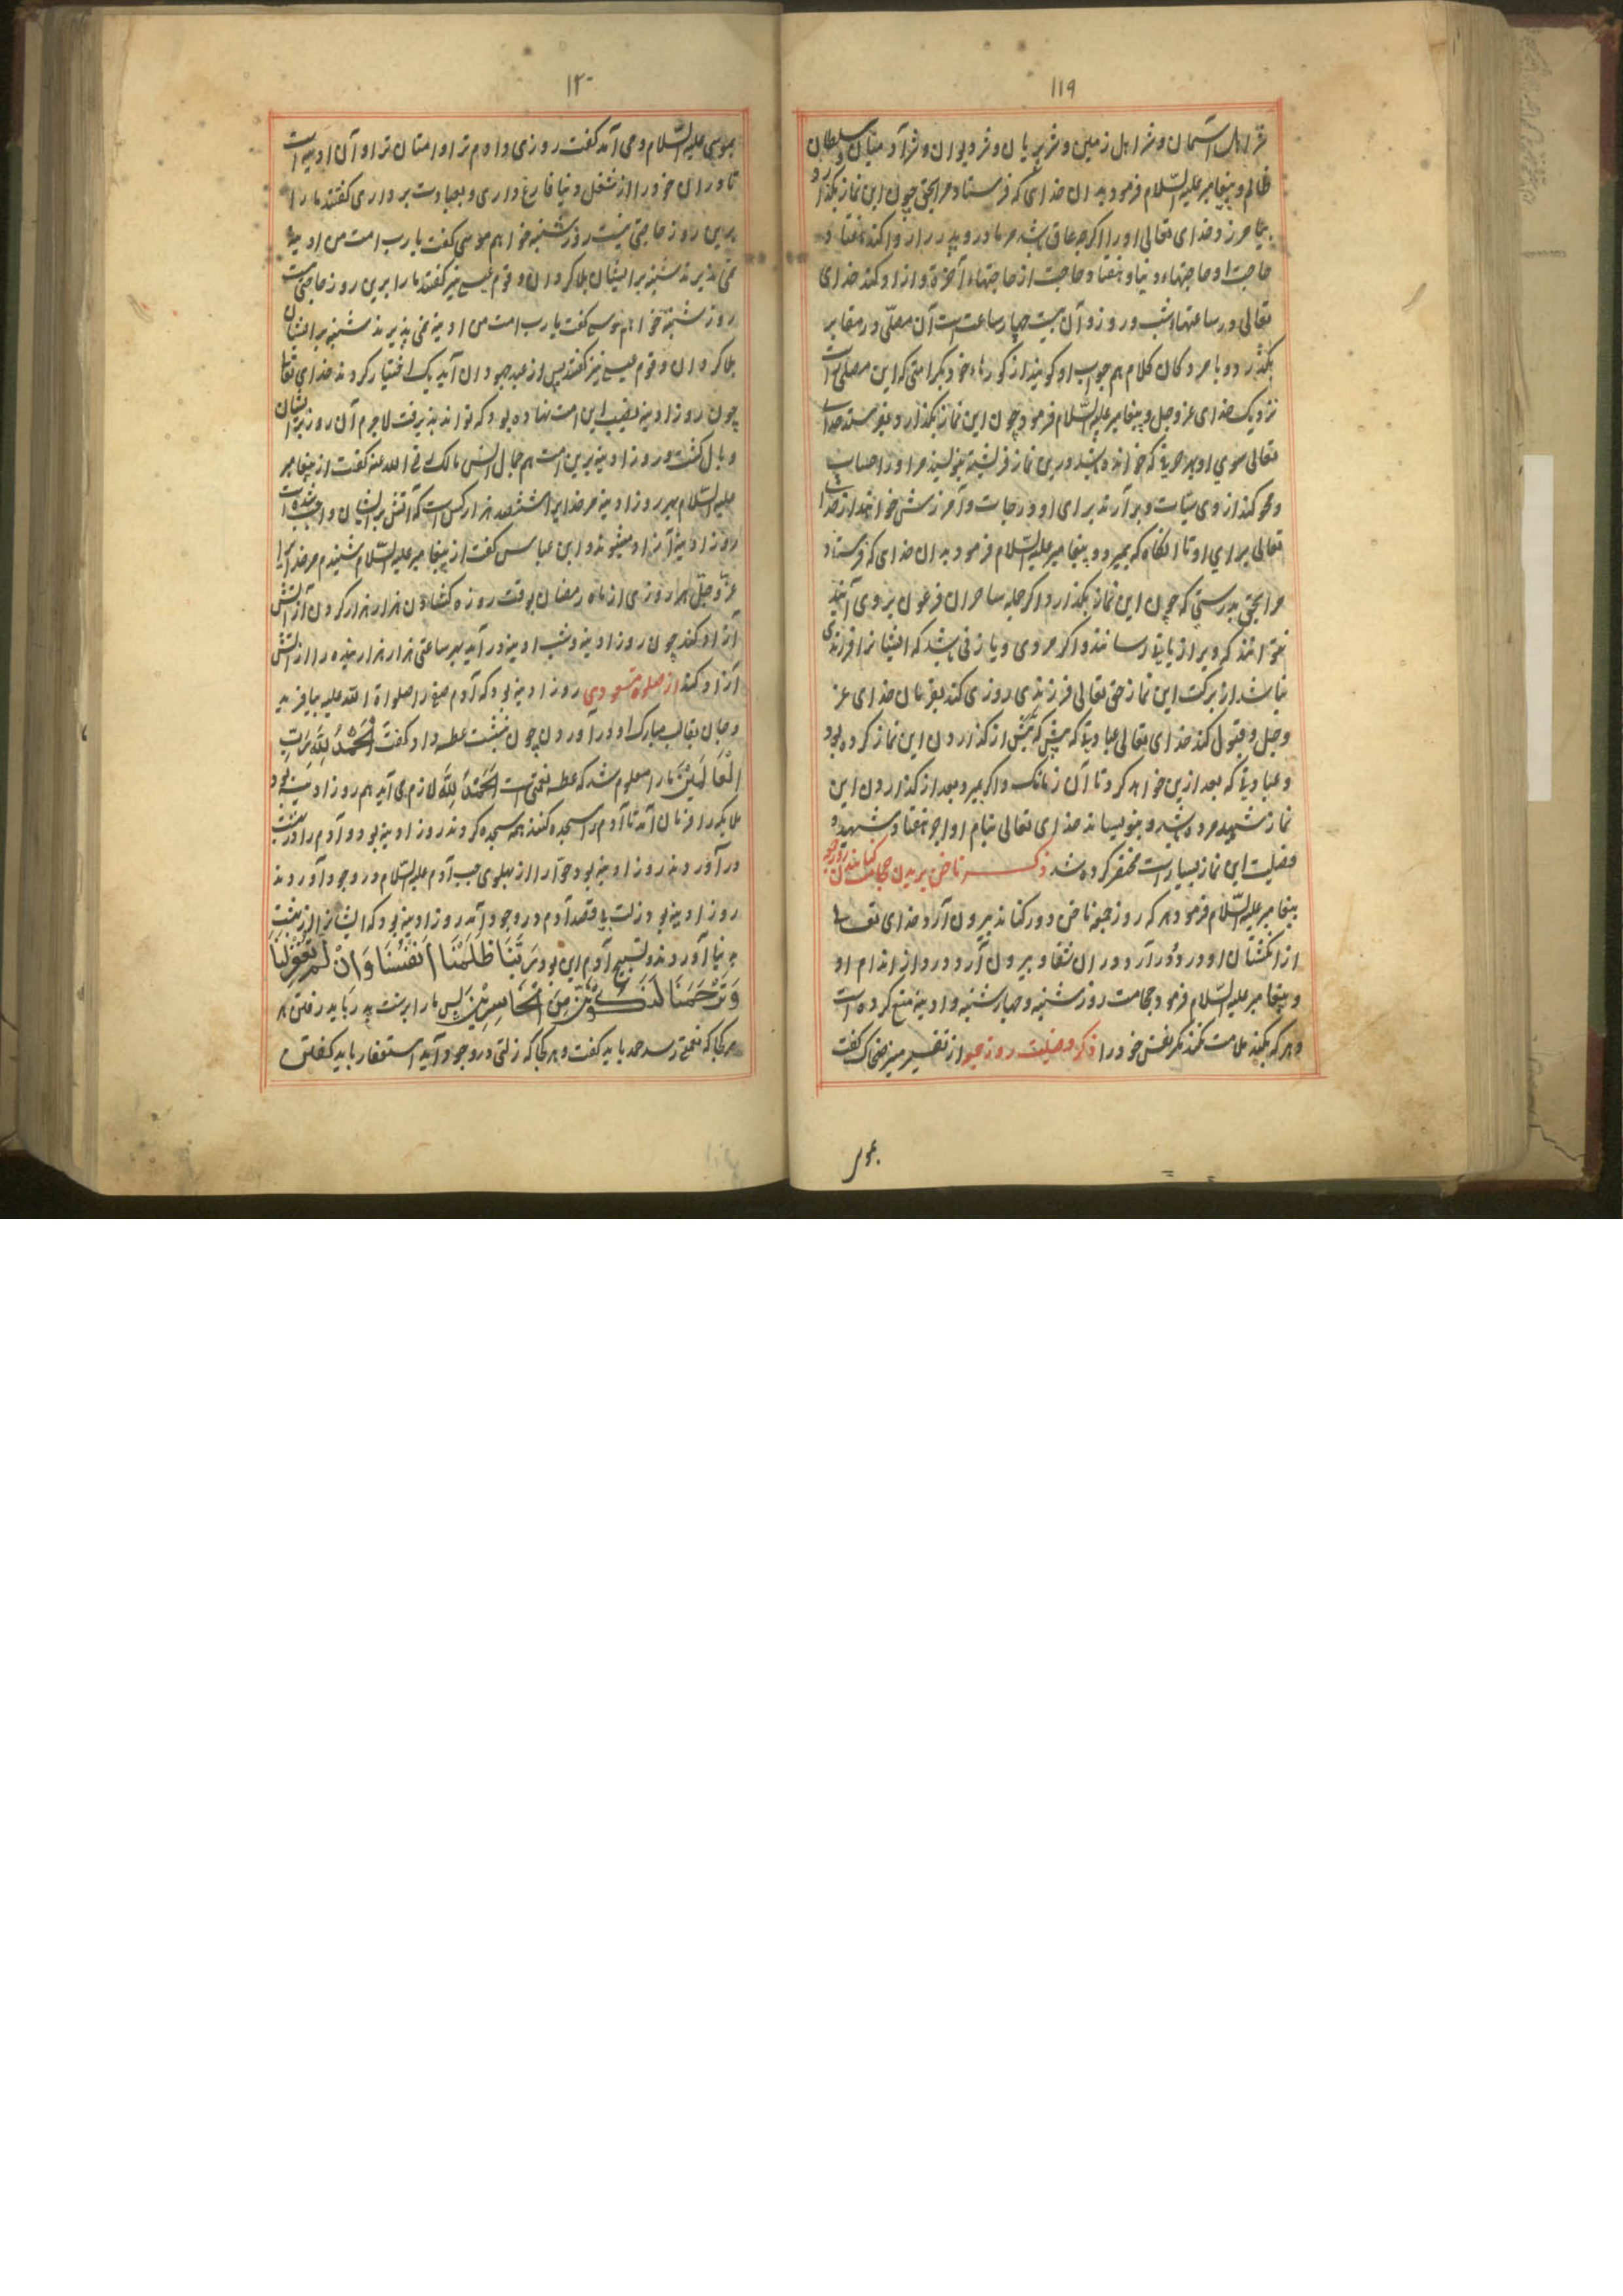 ۱۱۹
شر اهل آسمان و شر اهل زمین و شر پریان و شر دیوان و شر آدمیان و سلطان
ظالم و پیغامبر علیه السّلام فرمود بدان خدای که فرستاد مرا بحق چون این نماز بگذارد
بیامرزد خدای تعالی او را اگرچه عاق باشد مر مادر و پدر را و روا کند هفتاد
حاجت او حاجتهاء دنیا و هفتاد حاجت از حاجتهاء آخرة و ازو کند خدای
تعالی در ساعتهاء شب و روز و آن بیست چهار ساعت است آن مصلّی در مقابر
بگذرد و با مردگان کلام هم جواب او گویند از گورهاء خود بکرامتی که این مصلی راست
نزدیک خدای عز وجل و پیغامبر علیه السّلام فرمود چون این نماز بگذارد بفرستد خدا
تعالی سوی او بهر حرفی که خوانده باشد درین نماز فرشته بنویسند مر او را حسنات
و محو کند از وی سیّات و برآرند برای او درجات و آمرزش خواهند از خدا
تعالی برای او تا آنگاه که بمیرد و پیغامبر علیه السّلام فرمود بدان خدای که فرستاد
مرا بحق بدرستی که چون این نماز بگذارد اگر جمله ساحران فرعون بر وی آیند
نتوانند که ویرا زیانی رسانند و اگر مردی و یا زنی باشد که ایشانرا فرزندی
نباشد از برکت این نماز حق تعالی فرزندی روزی کند بفرمان خدای عز
وجل و قبول کند خدای تعالی عبادتی که پیش از گذاردن این نماز کرده بود
و عبادتی که بعد ازین خواهد کرد تا آن زمانکه و اگر بمیرد بعد از گذاردن این
نماز شهید مرده باشد و بنویساند خدای تعالی بنام او اجر هفتاد شهید و
فضیلت این نماز بسیار است مختصر کرده شد ذکر ناخن بریدن حجامت کنانیدن روز جمعه
پیغامبر علیه السّلام فرمود هر که روز جمعه ناخن دور کناند بیرون آرد خدای تعالی
از انگشتان او درد و درآرد در آن شفا و بیرون آرد درد از اندام او
و پیغامبر علیه السّلام فرمود حجامت روز شنبه و چهارشنبه و ادینه منع کرده است
و هر که بکند ملامت نکند مگر نفس خود را ذکر فضیلت روز جمعه از تفسیر منیر ضحاک گفت
۱۲۰
بموسی علیه السّلام وحی آمد گفت روزی دادم ترا و امتان ترا و آن ادینه است
تا در آن خود را از شغل دنیا فارغ داری و بعبادت برداری گفتند ما را
برین روز حاجتی نیست روز شنبه خواهم موسی گفت یا رب امت من ادینه
نمی پذیرند شنبه بر ایشان بلا کردان و قوم عیسی نیز گفتند ما را برین روز حاجتی نیست
روز شنبه خواهم موسی گفت یا رب امت من ادینه نمی پذیرند شنبه بر ایشان
بلا کردان و قوم عیسی نیز گفتند پس از عید جهودان آید یک اختیار کردند خدای تعالی
چون روز ادینه نصیب این امت نهاده بود که توانند پذیرفت لاجرم آن روز بر ایشان
وبال گشت و روز ادینه برین امت هم جمال انس مالک رضی الله عنه گفت از پیغامبر
علیه السّلام بهر روز ادینه مر خدایرا ششصد هزار کس است که آتش بر ایشان واجب شده است
روز ادینه آزاد میشوند و ابن عباس گفت از پیغامبر علیه السّلام شنیدم مر خدایرا
عزّ وجلّ هر روزی از ماه رمضان بوقت روزه گشادن هزار هزار گردن از آتش
آزاد کند چون روز ادینه و شب ادینه درآید بهر ساعتی هزار هزار بنده را از آتش
آزاد کند از صلوة مسعودی روز ادینه بود که آدم صفی را صلواة الله علیه بیافرید
و جان بقالب مبارک او درآوردن چون بنشست عطسه داد گفت اَلْحَمْدُ لِلّهِ رَبِّ
الْعَالَمِیْنَ ما را معلوم شد که عطسه نعمتی است اَلْحَمْدُ لِلّه لازم می آید هم روز ادینه بود
ملایکه را فرمان آمد تا آدم را سجده کنند همه سجده کردند روز ادینه بود و آدم را در بهشت
در آوردند روز ادینه بود حوّا را از پهلوی چپ آدم علیه السّلام در وجود آوردند
روز ادینه بود زلت بی قصد آدم در وجود آمد روز ادینه بود که ایشانرا از بهشت
بدنیا آوردند و تسبیح آدم این بود رَبَّنَا ظَلَمْنَا اَنْفُسَنَا وَاِنْ لَمْ تَغْفِرْلَنَا
وَتَرْحَمْنَا لَنَکُوْنَنَّ مِنَ الْخَاسِرِیْنَ پس ما را بر سنت پدر باید رفتن هر
هر کجا که نعمتی رسد حمد باید گفت و هر کجا که زلتی در وجود آید استغفار باید گفتن